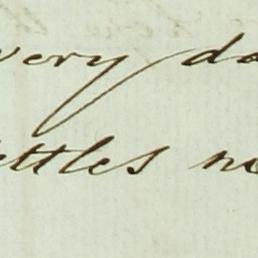 very da
ettles no